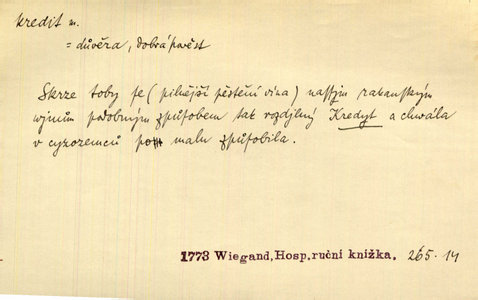 kredit m.
= důvěra, dobrá pověst
Skrze toby se (pilnější pěstění vína) nassym rakauským
wjnům podobným způsobem tak rozdjlný Kredyt a chwála
v cyzozemců po malu způsobila.
1773 Wiegand, Hosp. ruční knížka. 265. 14